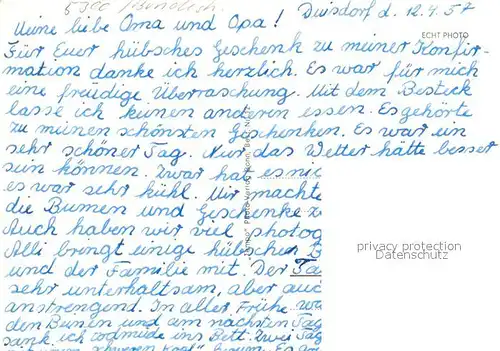 Duisdorf d. 12.4.57
Meine liebe Oma und Opa!
ECHT PHOTO
Für Euer hübsches Geschenk zu meiner Konfir-
mation danke ich herzlich. Es war für mich
eine freudige Überraschung. Mit dem Besteck
lasse ich keinen anderen essen. Es gehörte
zu meinen schönsten Geschenken. Es war ein
sehr schöner Tag. Nur das Wetter hätte besser
sein können. Zwar hat es nic
es war sehr kühl. Mir machte
die Bumen und Geschenke
Auch haben wir viel photog
Alli bringt einige hübsche B
und der Familie mit. Der Ta
sehr unterhaltsam, aber auc
anstrengend. In aller Frühe wa
den Bumen und am nächsten Tag
sank ich todmüde ins Bett. Zwei Tag
privacy protection
Datenschutz